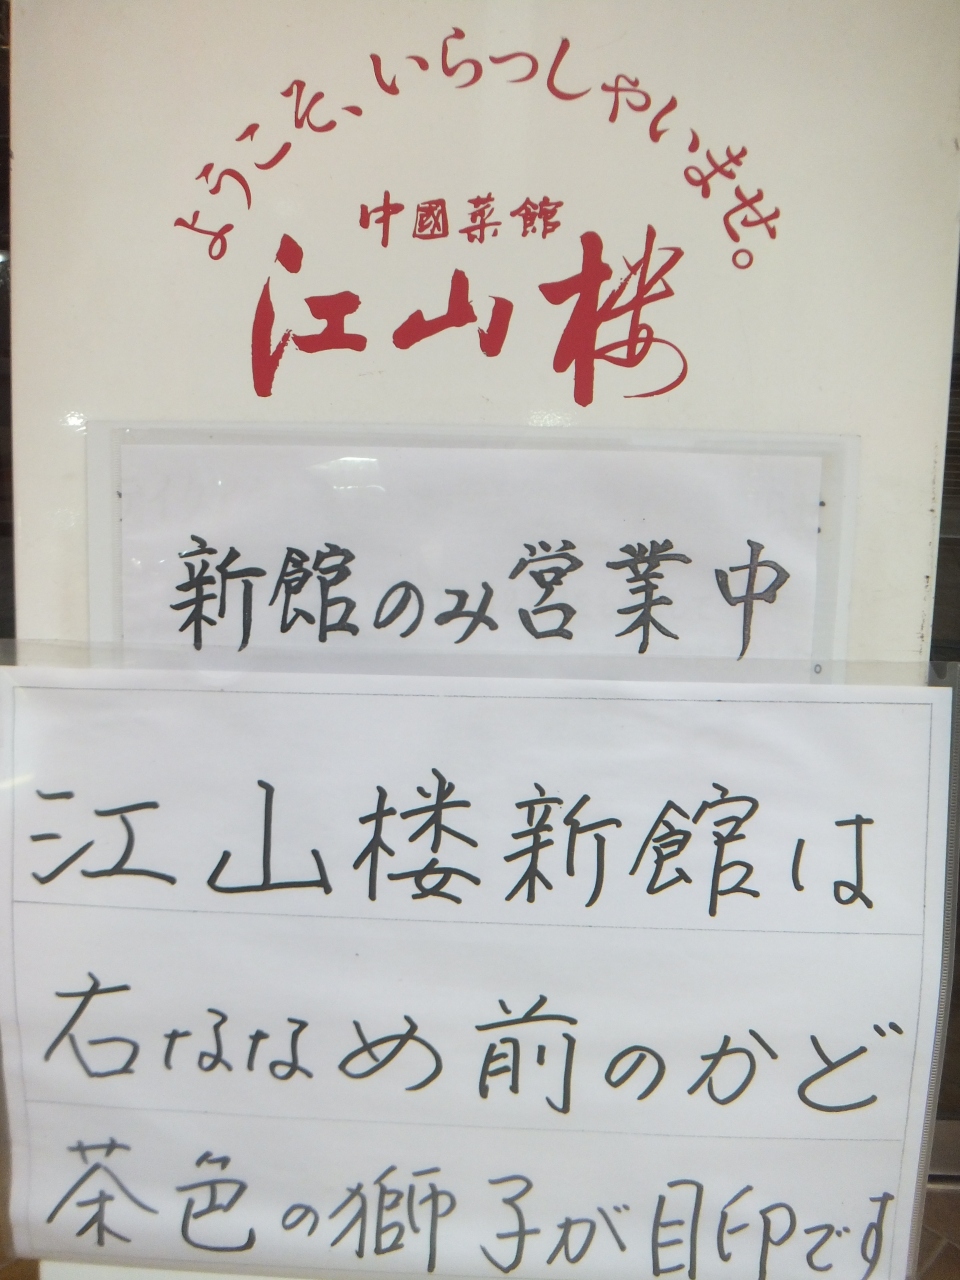 ようこそ、いらっしゃいませ。
中國菜館
江山楼
新館のみ営業中
江山楼新館は
右ななめ前のかど
茶色の獅子が目印です